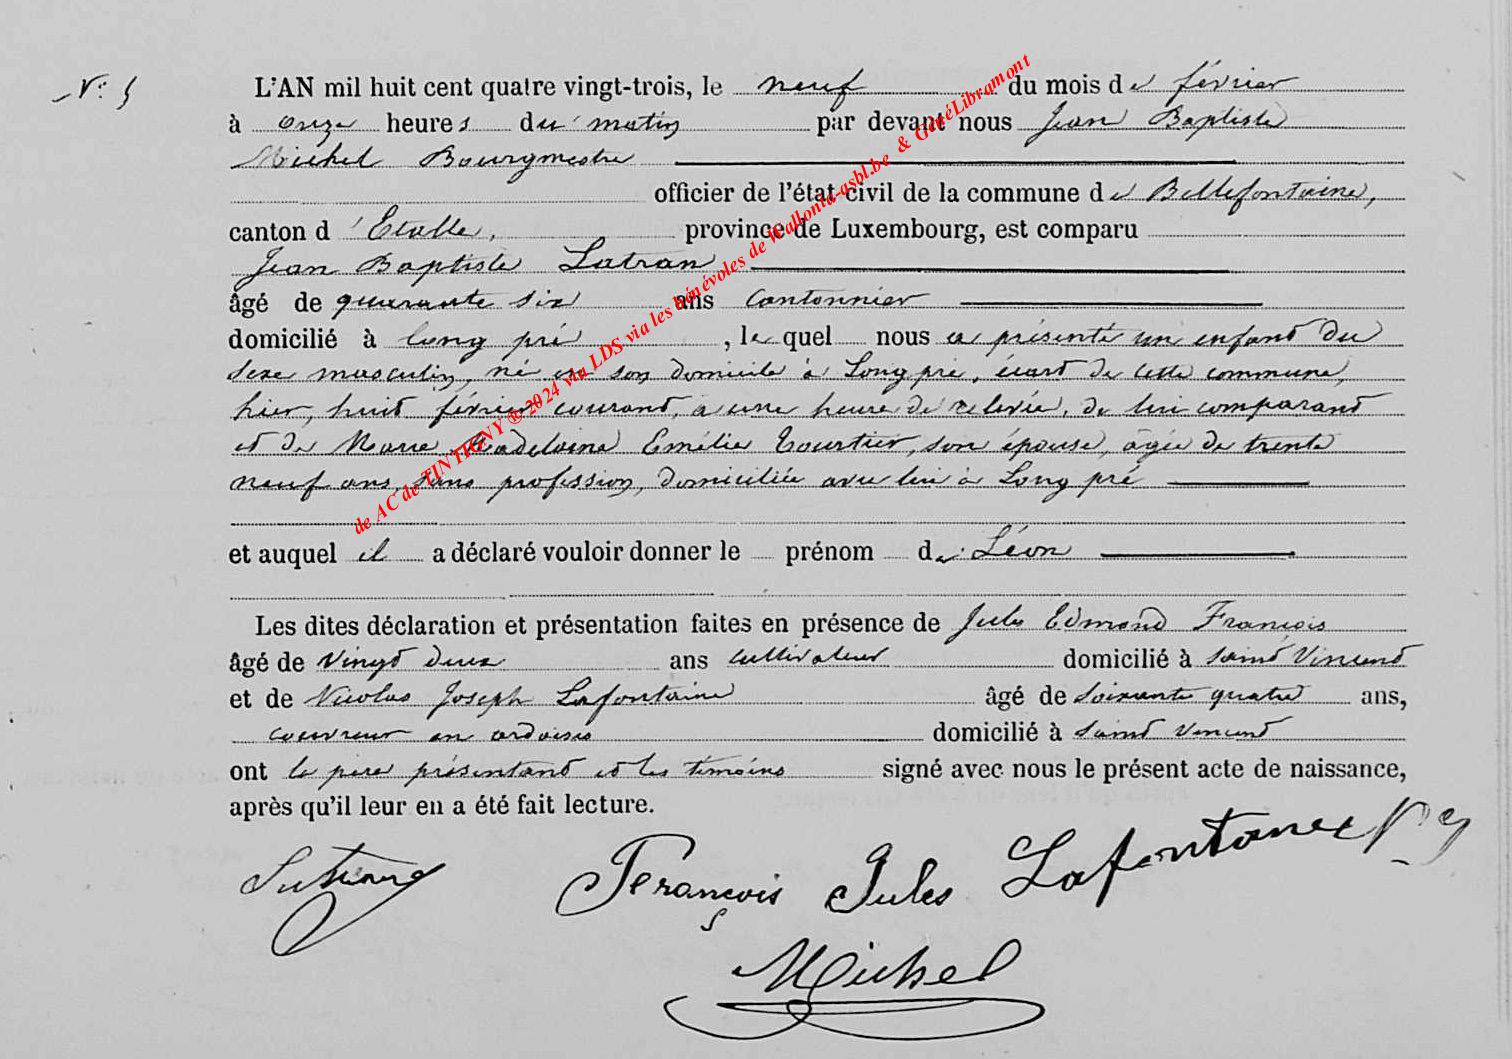 N° 5
L'AN mil huit cent quatre vingt-trois, le neuf du mois de février
à onze heures du matin par devant nous Jean Baptiste
Michel Bourgmestre
officier de l'état civil de la commune de Bellefontaine,
canton d'Etalle, province de Luxembourg, est comparu
Jean Baptiste Latran
âgé de quarante six ans Cantonnier
domicilié à long pré, le quel nous a présenté un enfant du
sexe masculin, né en son domicile à Long pré, écart de cette commune,
hier, huit février courant, à une heure de relevée, de lui comparant
et de Marie Madelaine Emélie Tourtier, son épouse, âgée de trente
neuf ans, sans profession, domiciliée avec lui à Long pré
et auquel il a déclaré vouloir donner le prénom de Léon
Les dites déclaration et présentation faites en présence de Jules Edmond François
âgé de vingt deux ans cultivateur domicilié à Saint Vincent
et de Nicolas Joseph Lafontaine âgé de soixante quatre ans,
couvreur en ardoises domicilié à Saint Vincent
ont le père présentant et les témoins signé avec nous le présent acte de naissance,
après qu'il leur en a été fait lecture.
François Jules Lafontaine
Michel
de AC de TINTIGNY © 2024 via LDS via les bénévoles de Wallonia-asbl.be & GénéLibramont